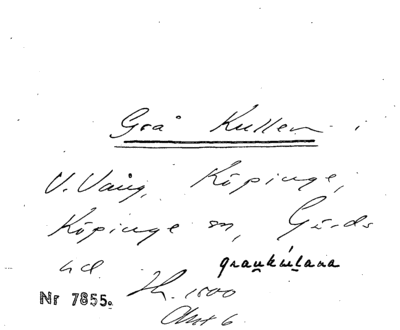 Grå Kullen i
V. Vång, Köpinge,
Köpinge sn, Gärds
hd. graukúlana
Nr 7855. Th. 1500